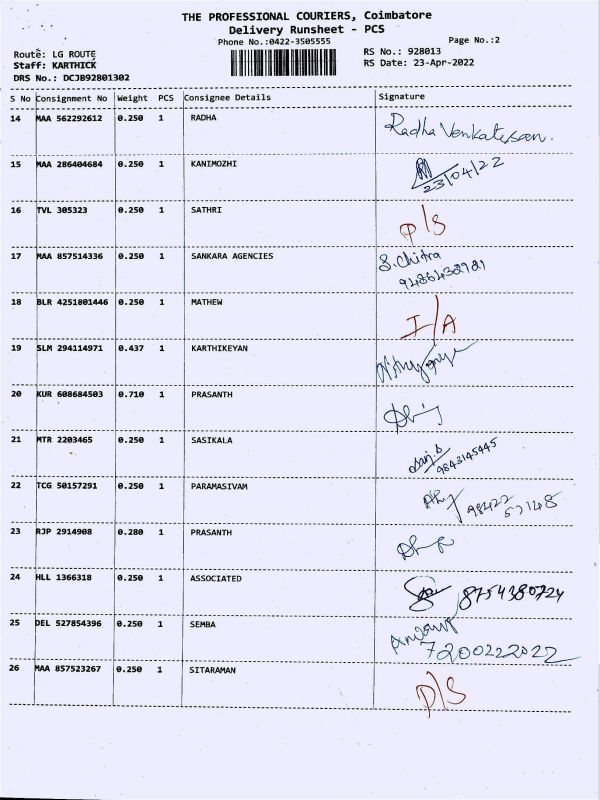 THE PROFESSIONAL COURIERS, Coimbatore
Delivery Runsheet - PCS
Phone No.:0422-3505555
Page No.:2
Route: LG ROUTE
RS No.: 928013
Staff: KARTHICK
RS Date: 23-Apr-2022
DRS No.: DCJB92801302
S No Consignment No Weight PCS Consignee Details Signature
14 MAA 562292612 0.250 1 RADHA Radha Venkatesan.
15 MAA 286404684 0.250 1 KANIMOZHI 23/04/22
16 TVL 305323 0.250 1 SATHRI D/S
17 MAA 857514336 0.250 1 SANKARA AGENCIES S.Chitra
9486432921
18 BLR 4251801446 0.250 1 MATHEW I/A
19 SLM 294114971 0.437 1 KARTHIKEYAN
20 KUR 608684503 0.710 1 PRASANTH
21 MTR 2203465 0.250 1 SASIKALA
9843145445
22 TCG 50157291 0.250 1 PARAMASIVAM 98422
57148
23 RJP 2914908 0.280 1 PRASANTH
24 HLL 1366318 0.250 1 ASSOCIATED 8754380724
25 DEL 527854396 0.250 1 SEMBA
7200222022
26 MAA 857523267 0.250 1 SITARAMAN D/S